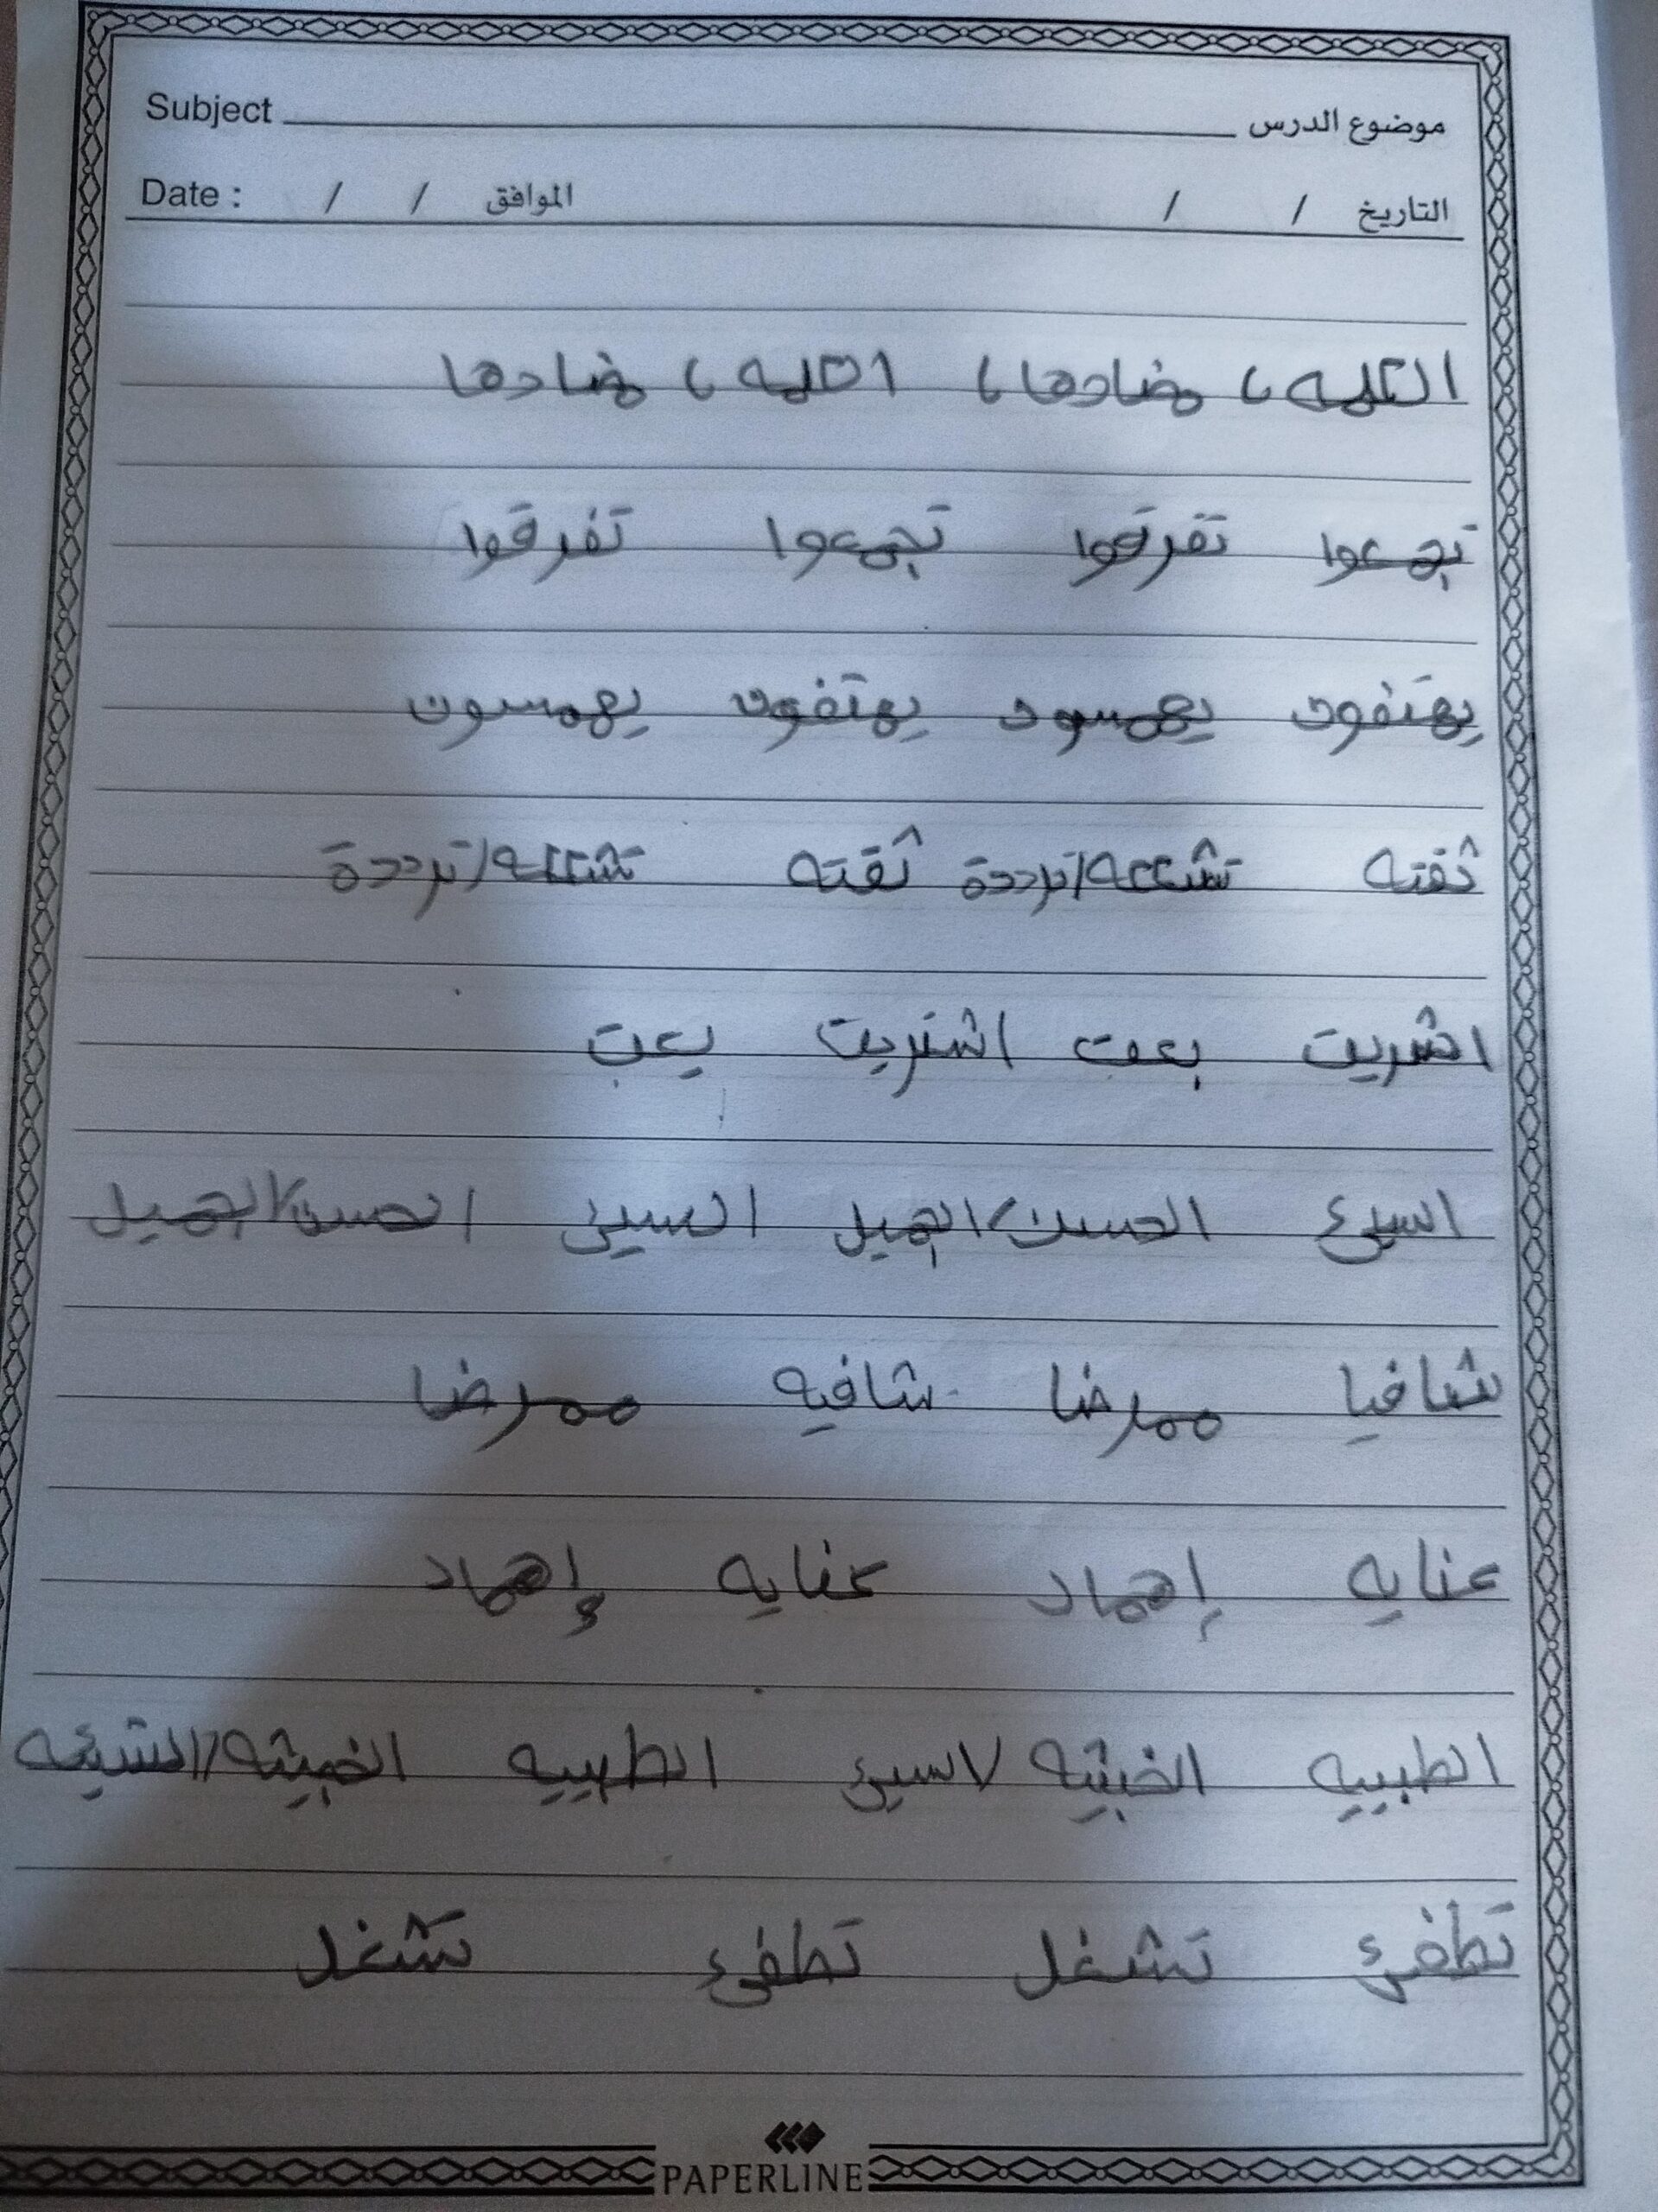 موضوع الدرس Subject
التاريخ / / الموافق / / Date :
الكلمه ، مضادها ، الكلمه ، مضادها
تجمعوا تفرقوا تجمعوا تفرقوا
يهتفون يهمسون يهتفون يهمسون
ثقته تشككه/ترددة ثقته تشككه/ترددة
اشريت بعت اشتريت يعت
السيئ الحسن/الجميل السيئ الحسن/الجميل
شافيا ممرضا شافيه ممرضا
عنايه إهماد عنايه إهماد
الطبيبه الخبيثه/السيئ الطبيبه الخبيثه/السيئه
تطفئ تشغل تطفئ تشغل
PAPERLINE